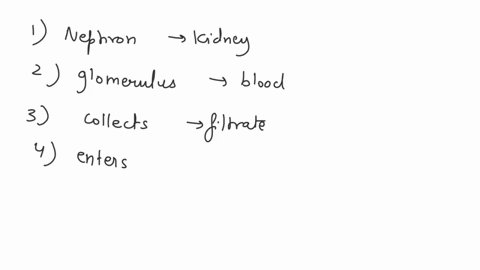 1) Nephron → kidney
2) glomerulus → blood
3) collects → filtrate
4) enters